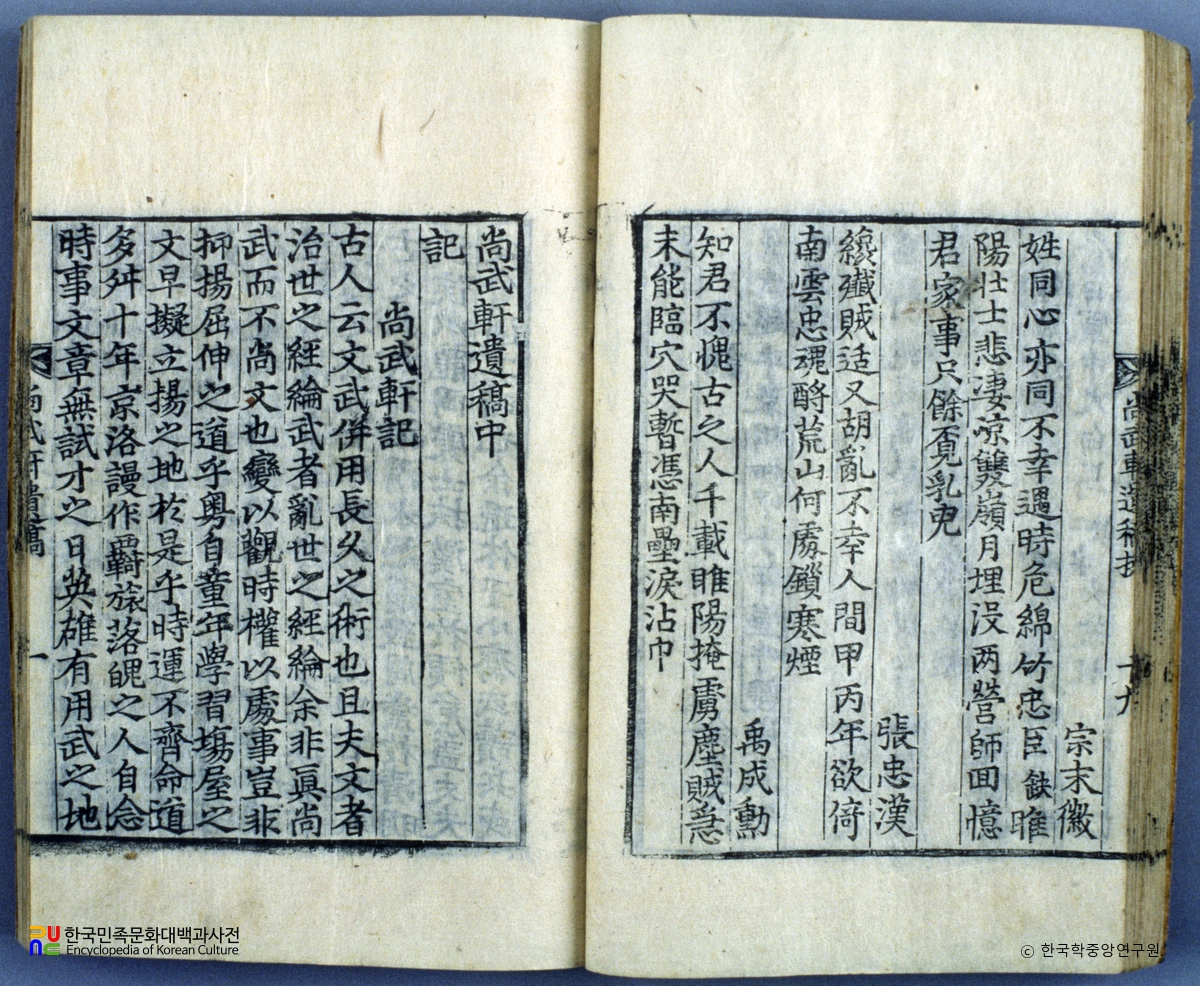 宗末徽
姓同心亦同不幸遇時危綿竹忠臣缺睢
陽壯士悲凄凉雙嶺月埋没两營師回憶
君家事只餘覓乳皃
張忠漢
纔殲賊适又胡亂不幸人間甲丙年欲倚
南雲忠魂酹荒山何處鎖寒煙
禹成勳
知君不愧古之人千載睢陽掩虜塵賊急
未能臨穴哭暫憑南壘淚沾巾
尚武軒遺稿抄
十九
尚武軒遺稿中
記
尚武軒記
古人云文武併用長久之術也且夫文者
治世之經綸武者亂世之經綸余非眞尚
武而不尚文也變以觀時權以處事豈非
抑揚屈伸之道乎粤自童年學習塲屋之
文早擬立揚之地於是乎時運不齊命道
多舛十年京洛謾作羈旅落魄之人自念
時事文章無試才之日英雄有用武之地
尚武軒遺稿
一
한국민족문화대백과사전
Encyclopedia of Korean Culture
ⓒ 한국학중앙연구원